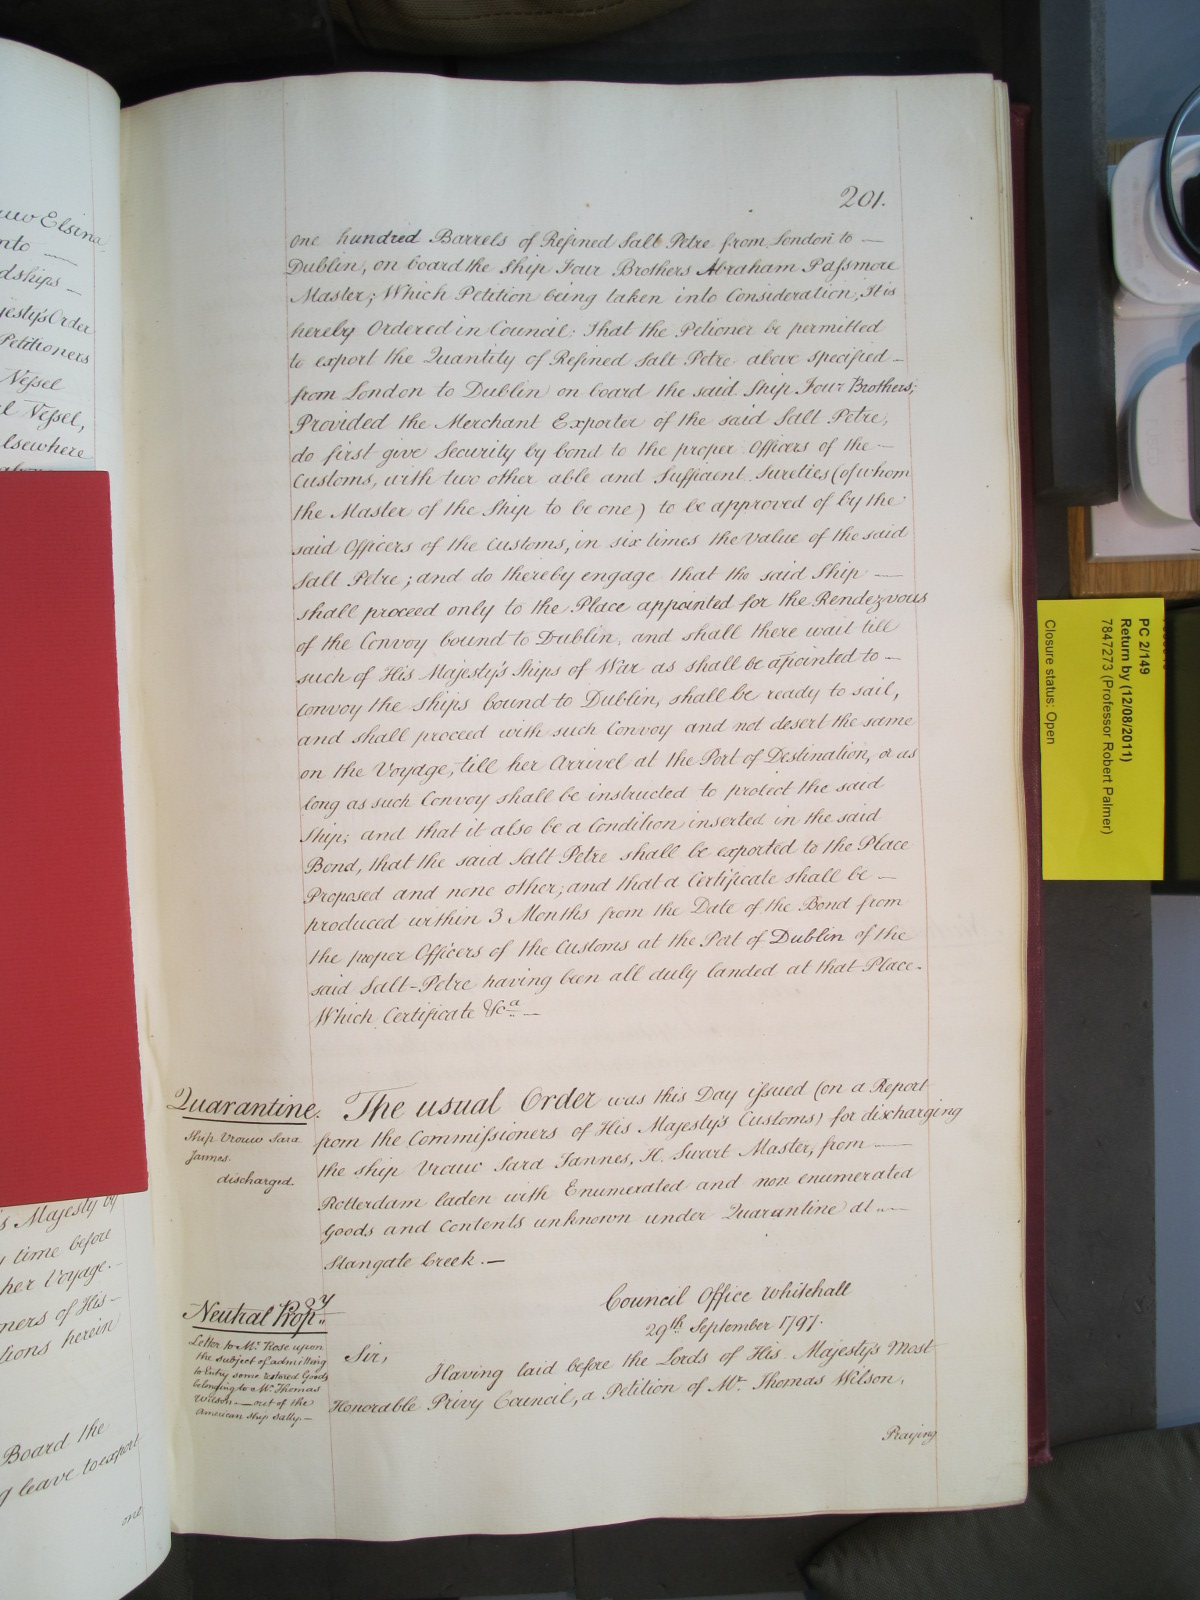 uw Elsina
nto
dships —
jesty's Order
Petitioners
Vessel
l Vessel,
lsewhere
s Majesty by
time before
her Voyage.
ners of His —
tions herein
Board the
g leave to export
one
201.
one hundred Barrels of Refined Salt Petre from London to —
Dublin, on board the Ship Four Brothers Abraham Passmore
Master; Which Petition being taken into Consideration, It is
hereby Ordered in Council; That the Petioner be permitted
to export the Quantity of Refined Salt Petre above specified —
from London to Dublin on board the said Ship Four Brothers;
Provided the Merchant Exporter of the said Salt Petre,
do first give Security by bond to the proper Officers of the —
Customs, with two other able and Sufficient Sureties (of whom
the Master of the Ship to be one) to be approved of by the
said Officers of the Customs, in six times the Value of the said
Salt Petre; and do thereby engage that the said Ship —
shall proceed only to the Place appointed for the Rendezvous
of the Convoy bound to Dublin, and shall there wait till
such of His Majesty's Ships of War as shall be apointed to —
convoy the Ships bound to Dublin, shall be ready to sail,
and shall proceed with such Convoy and not desert the same
on the Voyage, till her Arrival at the Port of Destination, or as
long as such Convoy shall be instructed to protect the said
Ship; and that it also be a Condition inserted in the said
Bond, that the said Salt Petre shall be exported to the Place
Proposed and none other; and that a Certificate shall be —
produced within 3 Months from the Date of the Bond from
the proper Officers of the Customs at the Port of Dublin of the
said Salt-Petre having been all duly landed at that Place.
Which Certificate &ca. —
Quarantine.
Ship Vrouw Sara
Jannes.
discharged.
The usual Order was this Day issued (on a Report
from the Commissioners of His Majesty's Customs) for discharging
the ship Vrouc Sara Jannes, H. Swart Master, from —
Rotterdam laden with Enumerated and non enumerated
Goods and Contents unknown under Quarantine at —
Stangate Creek. —
Neutral Propy
Letter to Mr. Rose upon
the subject of admitting
to Entry some restored Goods
belonging to a Mr. Thomas
Wilson — out of the
American Ship Sally —
Council Office Whitehall
29th September 1797.
Sir,
Having laid before the Lords of His Majesty's Most
Honorable Privy Council, a Petition of Mr. Thomas Wilson,
Praying
PC 2/149
Return by (12/08/2011)
7847273 (Professor Robert Palmer)
Closure status: Open